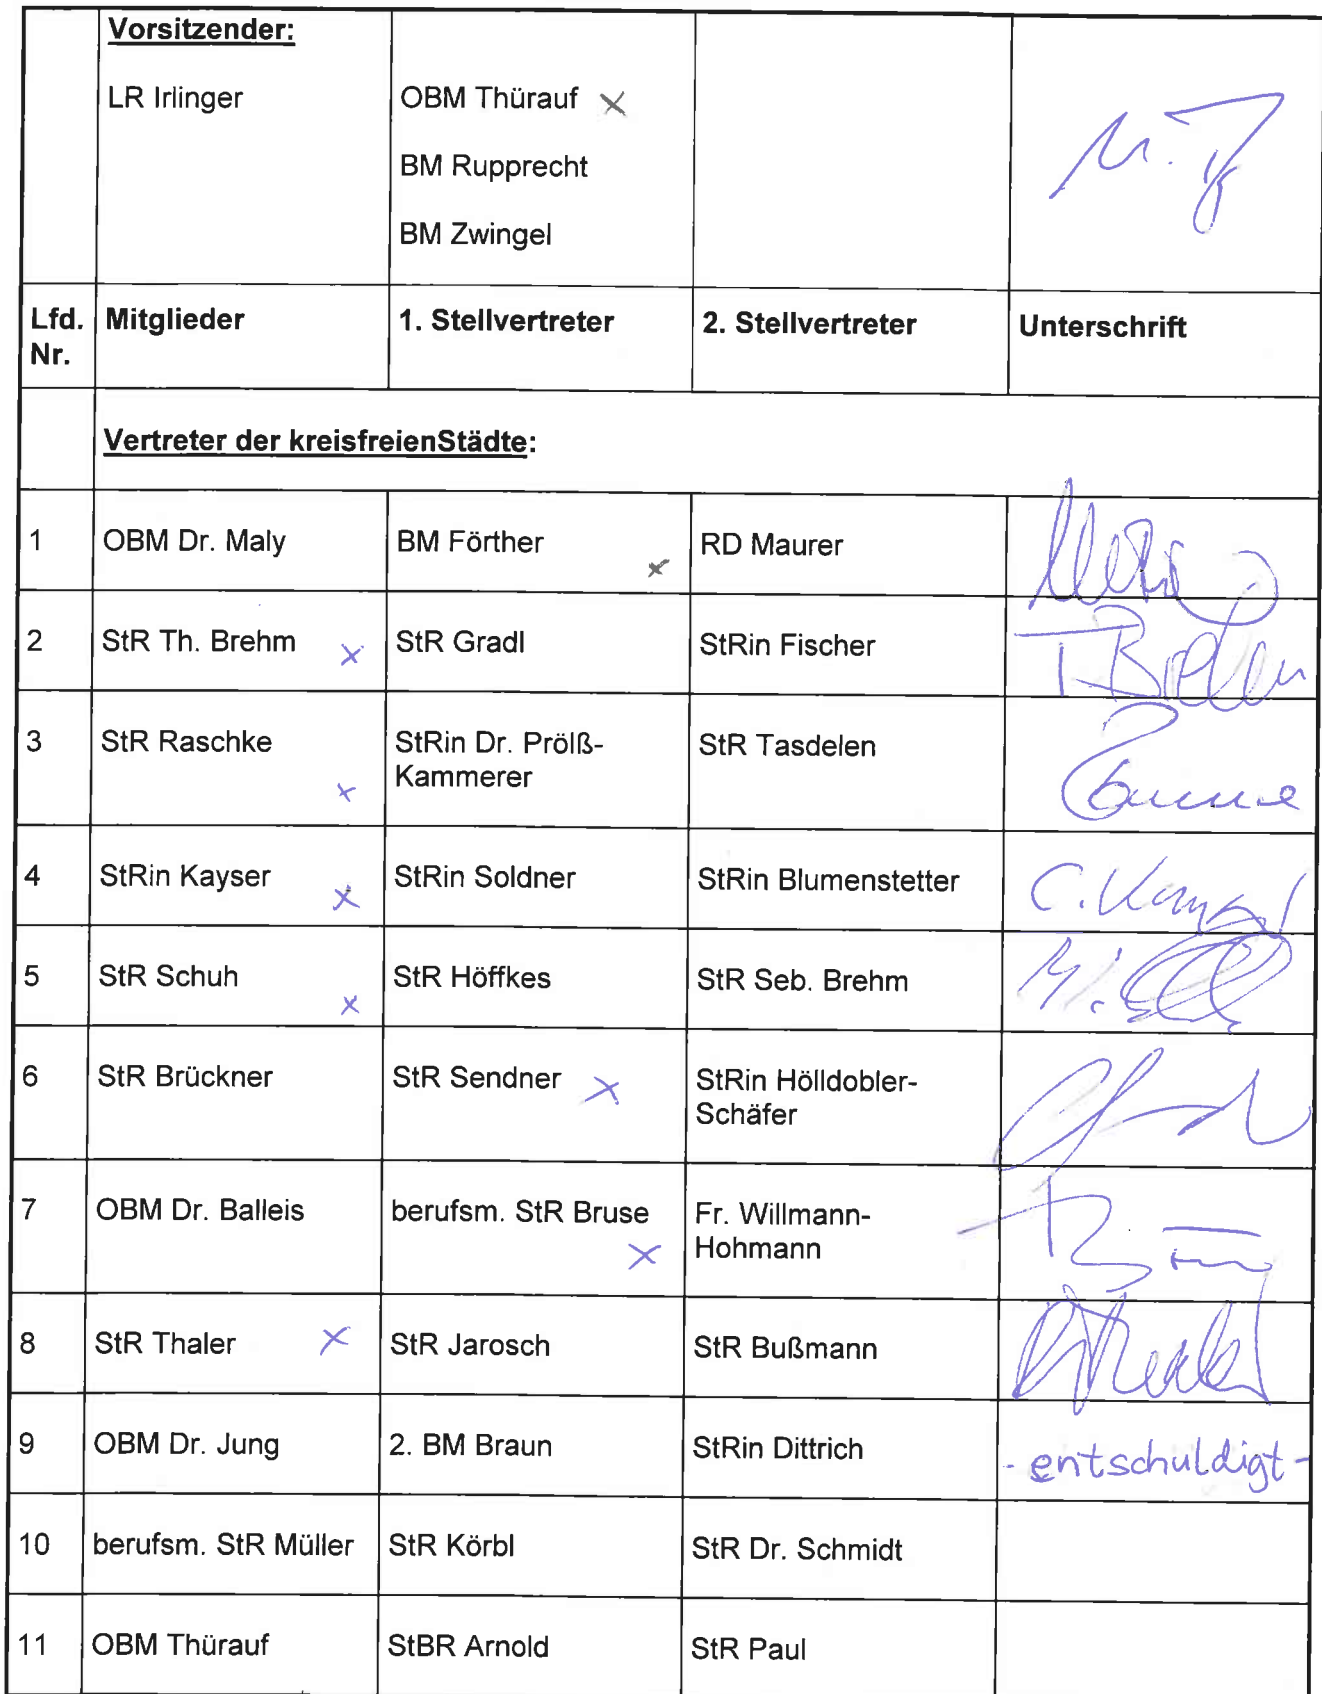 Vorsitzender:
LR Irlinger
OBM Thürauf ×
BM Rupprecht
BM Zwingel
Lfd. Nr. Mitglieder 1. Stellvertreter 2. Stellvertreter Unterschrift
Vertreter der kreisfreienStädte:
1 OBM Dr. Maly BM Förther × RD Maurer
2 StR Th. Brehm × StR Gradl StRin Fischer
3 StR Raschke × StRin Dr. Prölß-
Kammerer StR Tasdelen
4 StRin Kayser × StRin Soldner StRin Blumenstetter
5 StR Schuh × StR Höffkes StR Seb. Brehm
6 StR Brückner StR Sendner × StRin Hölldobler-
Schäfer
7 OBM Dr. Balleis berufsm. StR Bruse × Fr. Willmann-
Hohmann
8 StR Thaler × StR Jarosch StR Bußmann
9 OBM Dr. Jung 2. BM Braun StRin Dittrich - entschuldigt -
10 berufsm. StR Müller StR Körbl StR Dr. Schmidt
11 OBM Thürauf StBR Arnold StR Paul